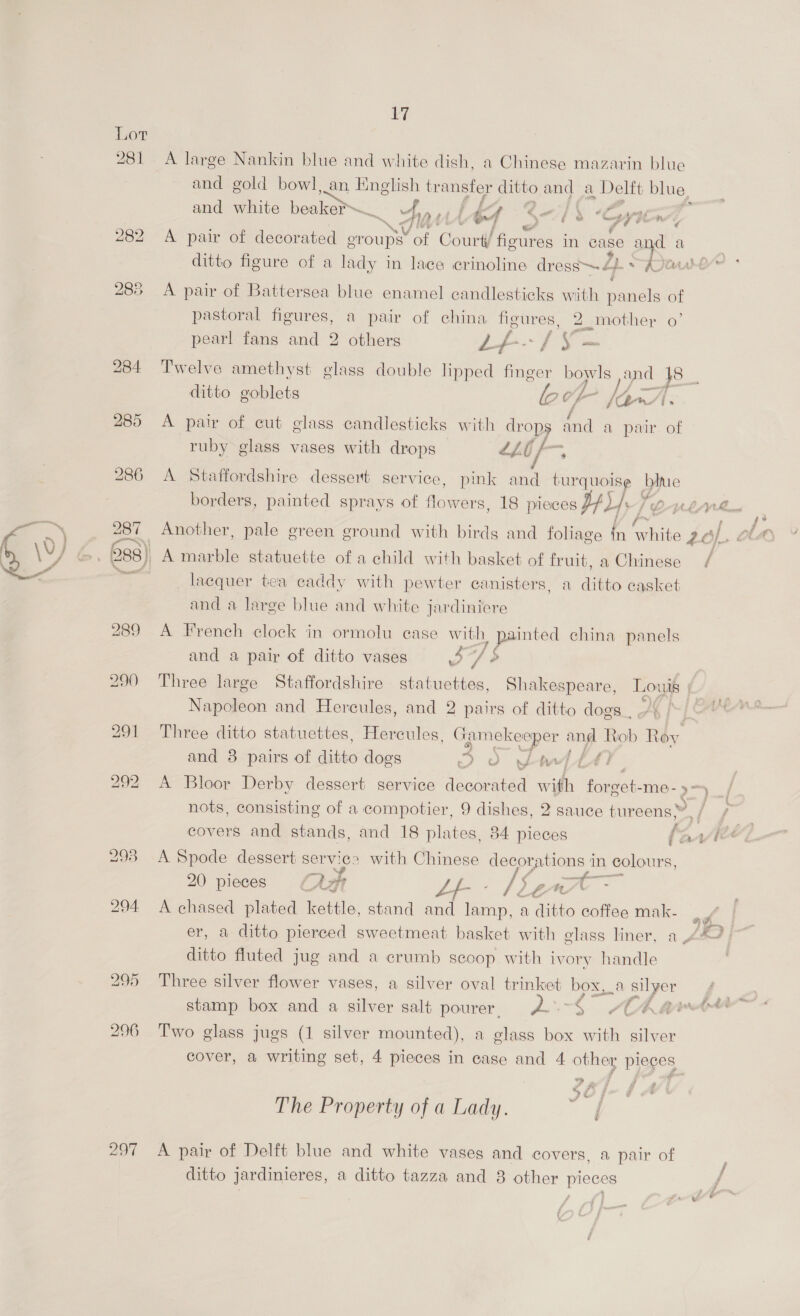 17
Lot
281 A large Nankin blue and white dish, a Chinese mazarin blue
and gold bowl, an English transfer ditto and a Delft blue
and white beaker
282 A pair of decorated groups of Court figures in case and a
ditto figure of a lady in lace crinoline dress
283 A pair of Battersea blue enamel candlesticks with panels of
pastoral figures, a pair of china figures, 2 mother o'
pearl fans and 2 others
284 Twelve amethyst glass double lipped finger bowls and 18
ditto goblets
285 A pair of cut glass candlesticks with drops and a pair of
ruby glass vases with drops
286 A Staffordshire dessert service, pink and turquoise blue
borders, painted sprays of flowers, 18 pieces
287 Another, pale green ground with birds and foliage in white
288 A marble statuette of a child with basket of fruit, a Chinese
lacquer tea caddy with pewter canisters, a ditto casket
and a large blue and white jardiniere
289 A French clock in ormolu case with painted china panels
and a pair of ditto vases
290 Three large Staffordshire statuettes, Shakespeare, Louis
Napoleon and Hercules, and 2 pairs of ditto dogs
291 Three ditto statuettes, Hercules, Gamekeeper and Rob Roy
and 3 pairs of ditto dogs
292 A Bloor Derby dessert service decorated with forget-me-
nots, consisting of a compotier, 9 dishes, 2 sauce tureens,
covers and stands, and 18 plates, 34 pieces
293 A Spode dessert service with Chinese decorations in colours,
20 pieces
294 A chased plated kettle, stand and lamp, a ditto coffee mak-
er, a ditto pierced sweetmeat basket with glass liner, a
ditto fluted jug and a crumb scoop with ivory handle
295 Three silver flower vases, a silver oval trinket box, a silver
stamp box and a silver salt pourer
296 Two glass jugs (1 silver mounted), a glass box with silver
cover, a writing set, 4 pieces in case and 4 other pieces
The Property of a Lady.
297 A pair of Delft blue and white vases and covers, a pair of
ditto jardinieres, a ditto tazza and 3 other pieces